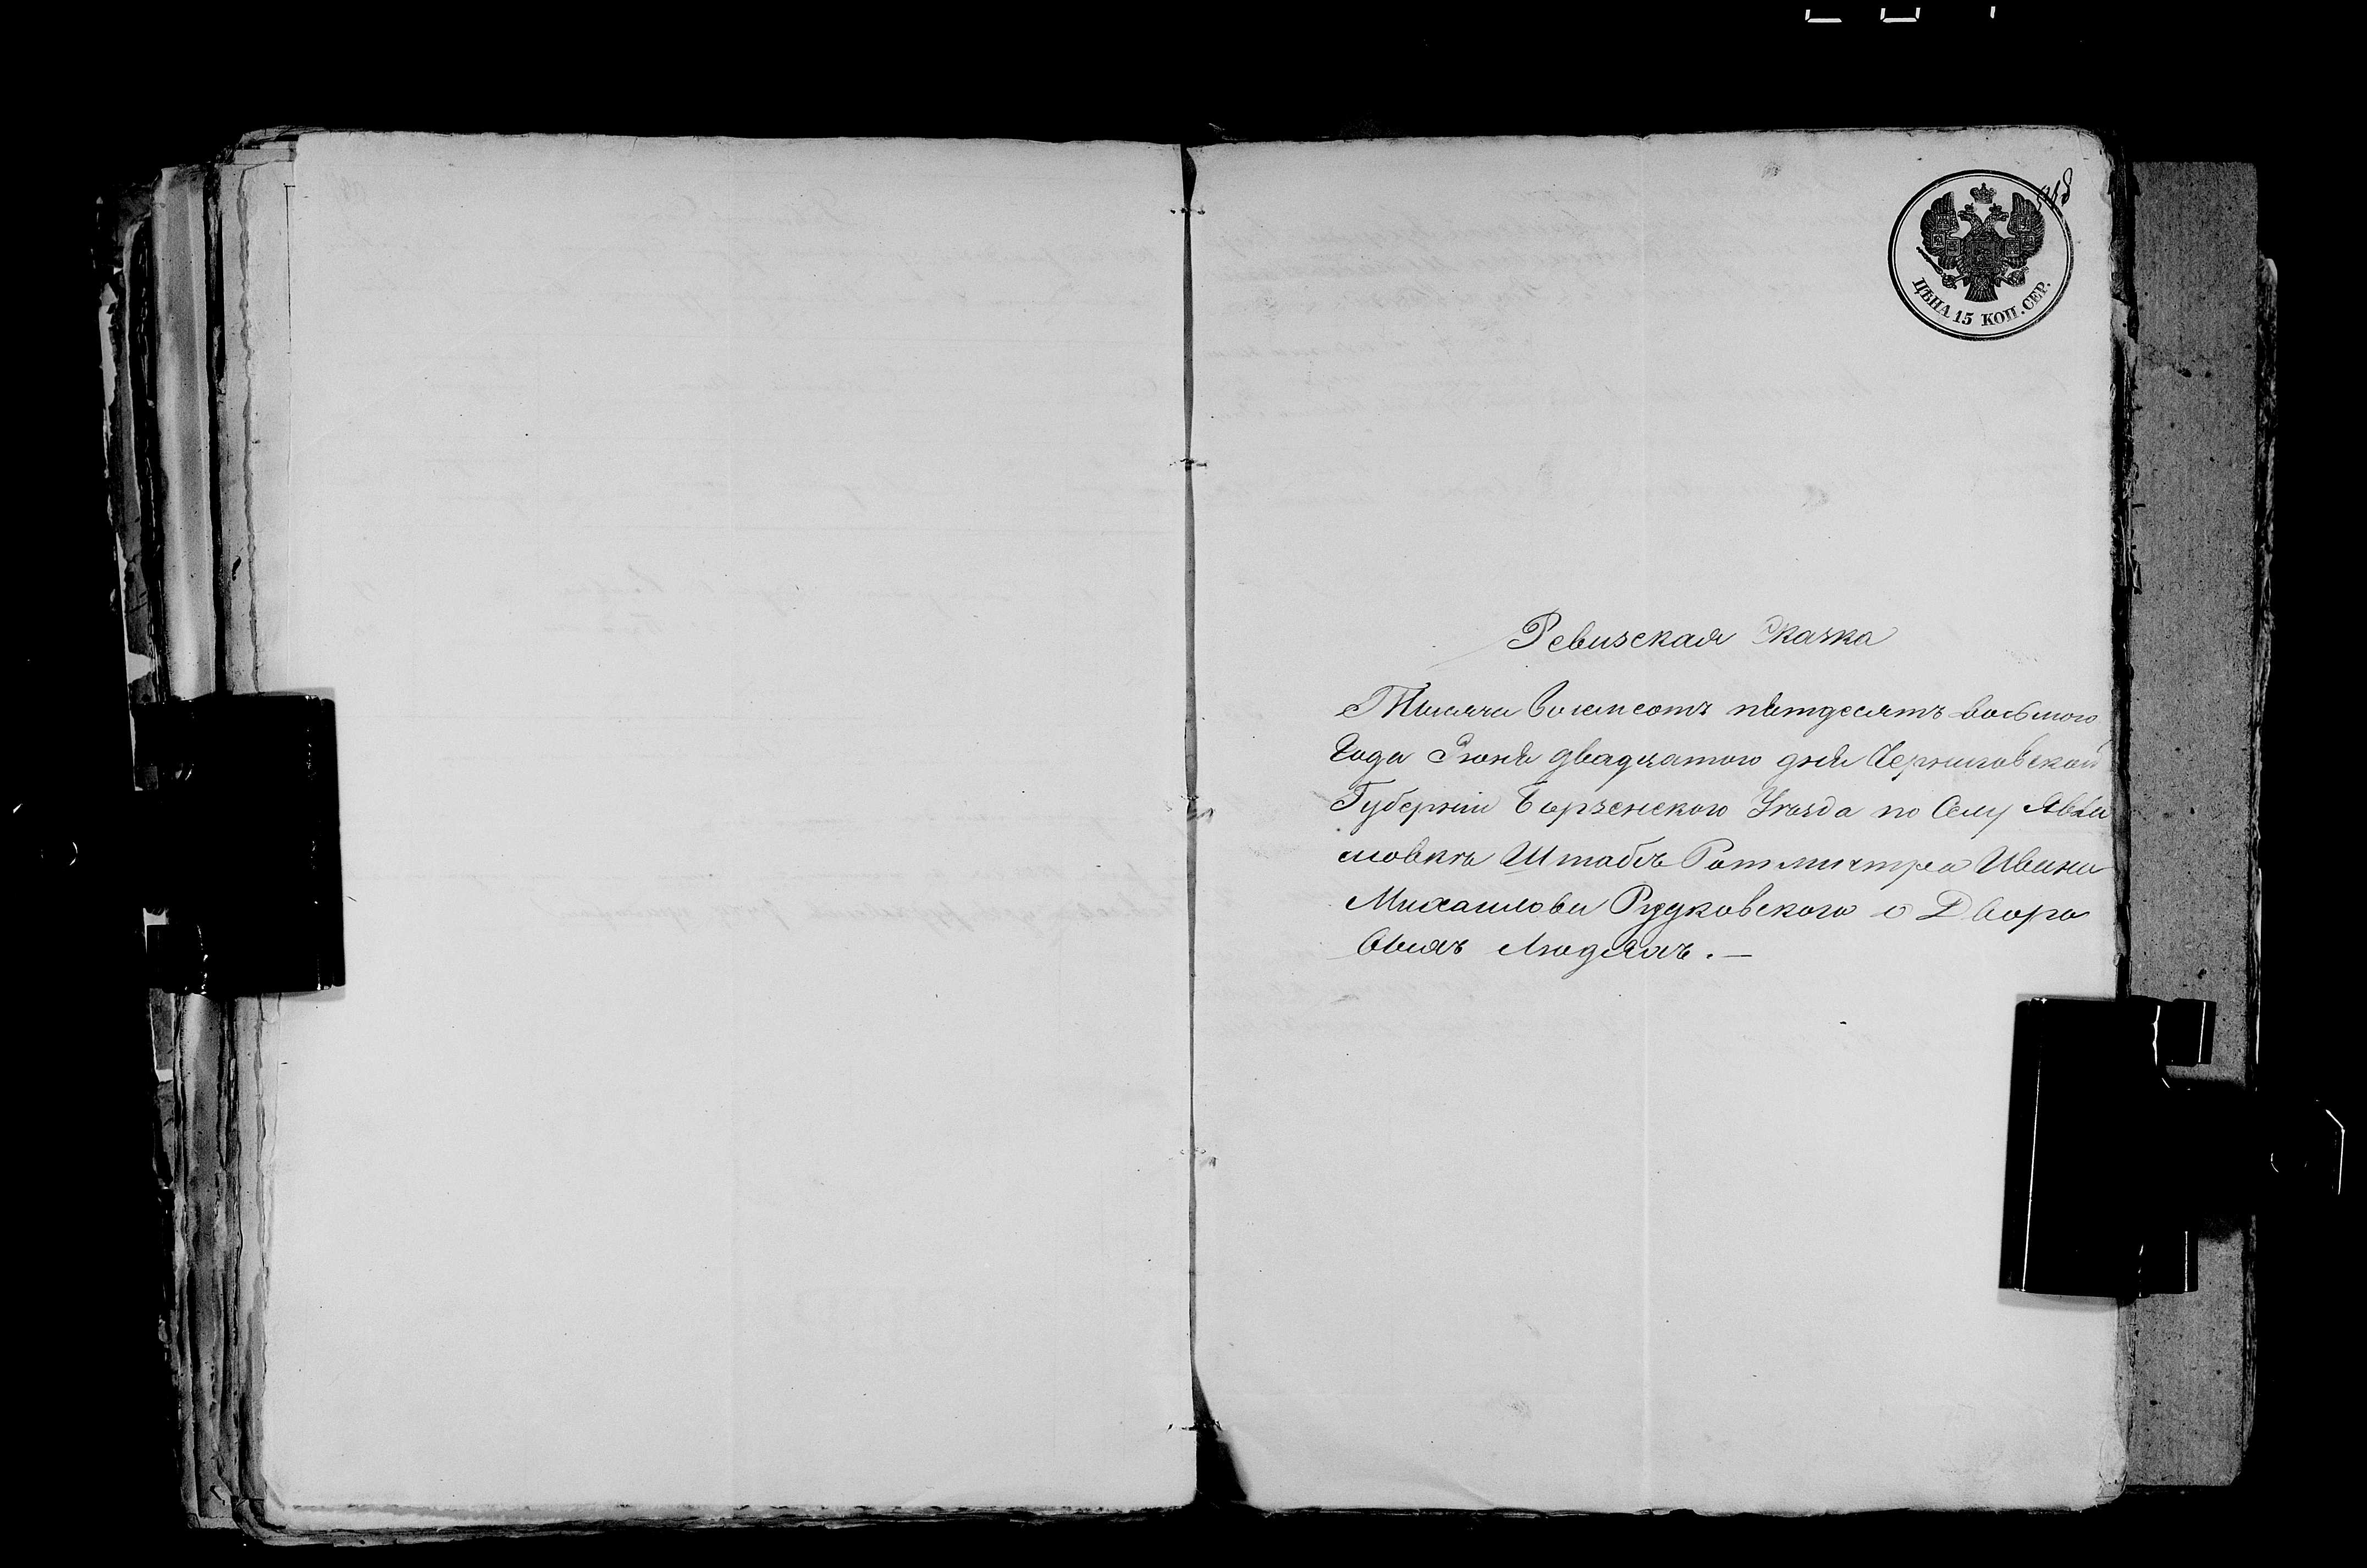 ЦѢНА 15 КОП. СЕР.
Ревизская Сказка
Тысяча восемсотъ пятдесятъ восьмого
Года Июня двадцатого дня Черниговской
Губернии Борзенского Уезда по Селу
Штабъ Ротмистра Ивана
Михаилова Рудковского о Дворо
выхъ Людяхъ. —